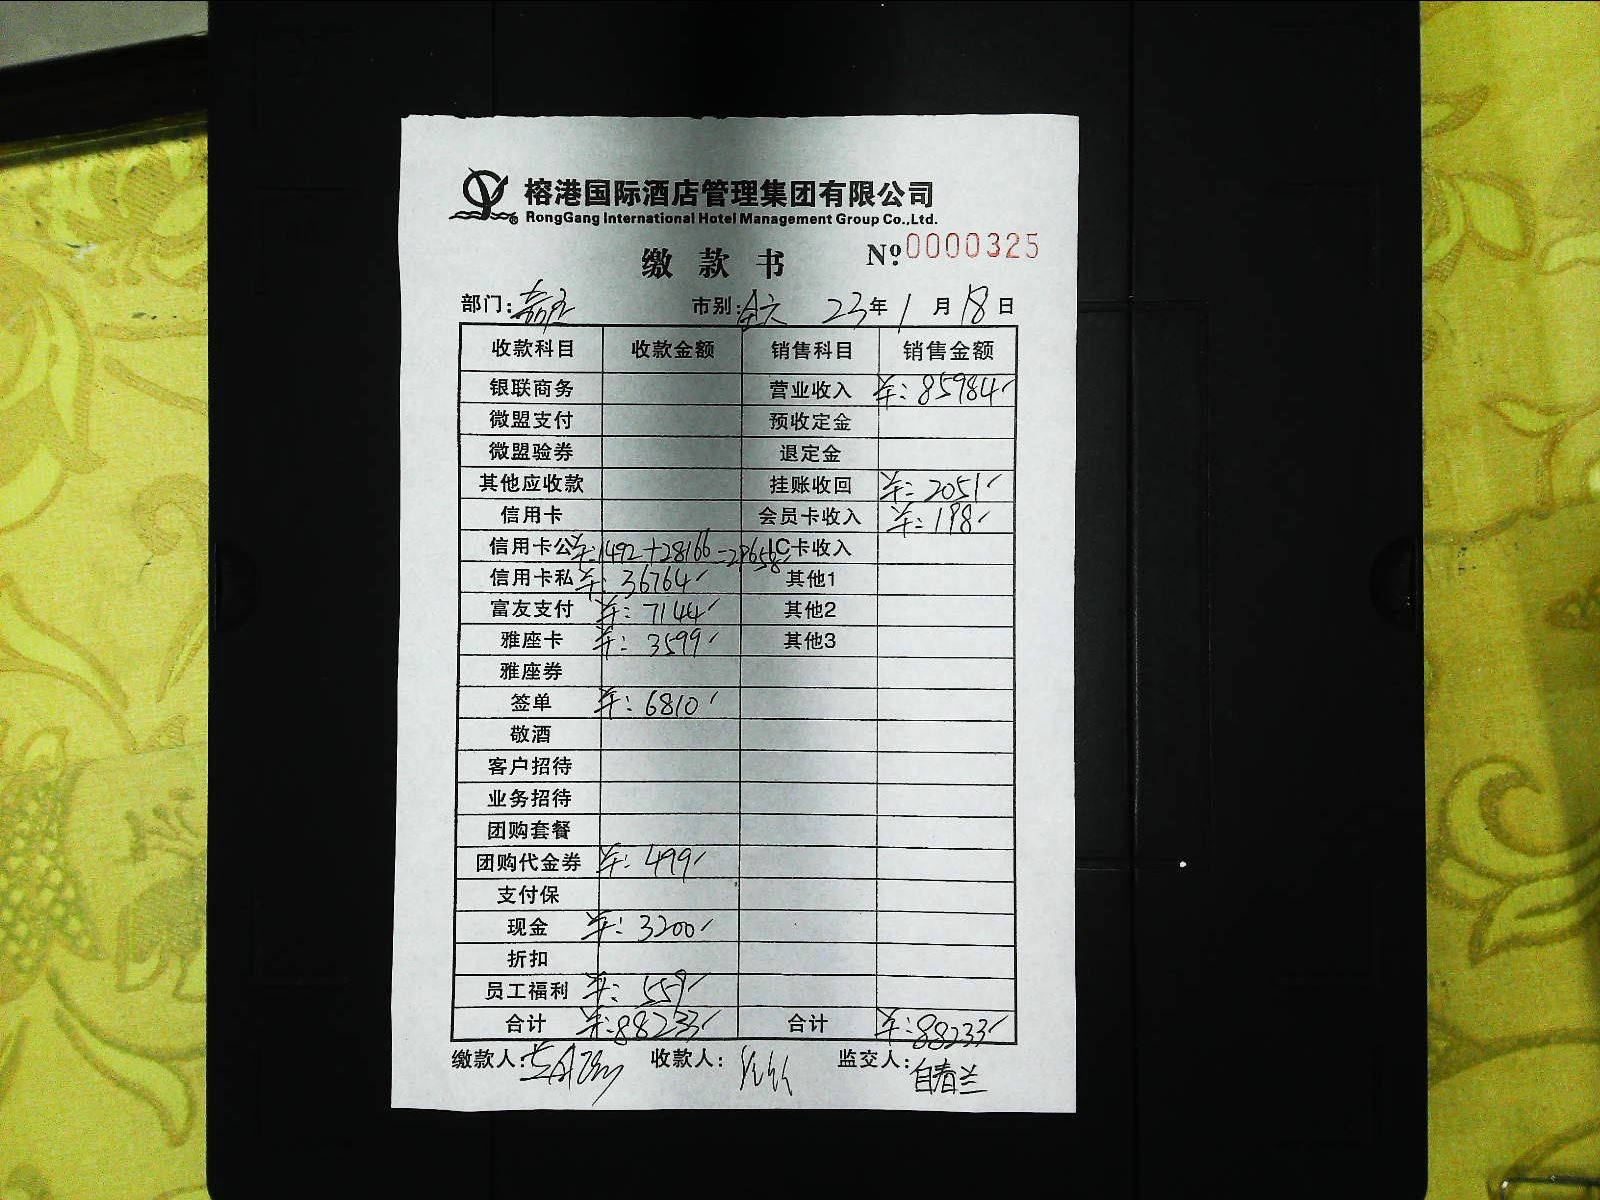 榕港国际酒店管理集团有限公司
RongGang International Hotel Management Group Co.,Ltd.
缴款书 Nº 0000325
部门: 市别: 23年1月18日
收款科目 收款金额 销售科目 销售金额
银联商务 营业收入 卡: 85984
微盟支付 预收定金
微盟验券 退定金
其他应收款 挂账收回 卡: 2051
信用卡 会员卡收入 卡: 198
信用卡公 卡: 1492+28166=29658 IC卡收入
信用卡私 卡: 36764 其他1
富友支付 卡: 7144 其他2
雅座卡 卡: 3599 其他3
雅座券
签单 卡: 6810
敬酒
客户招待
业务招待
团购套餐
团购代金券 卡: 499
支付保
现金 卡: 3200
折扣
员工福利 卡: 559
合计 卡: 88233 合计 卡: 88233
缴款人: 收款人: 监交人: 自春兰